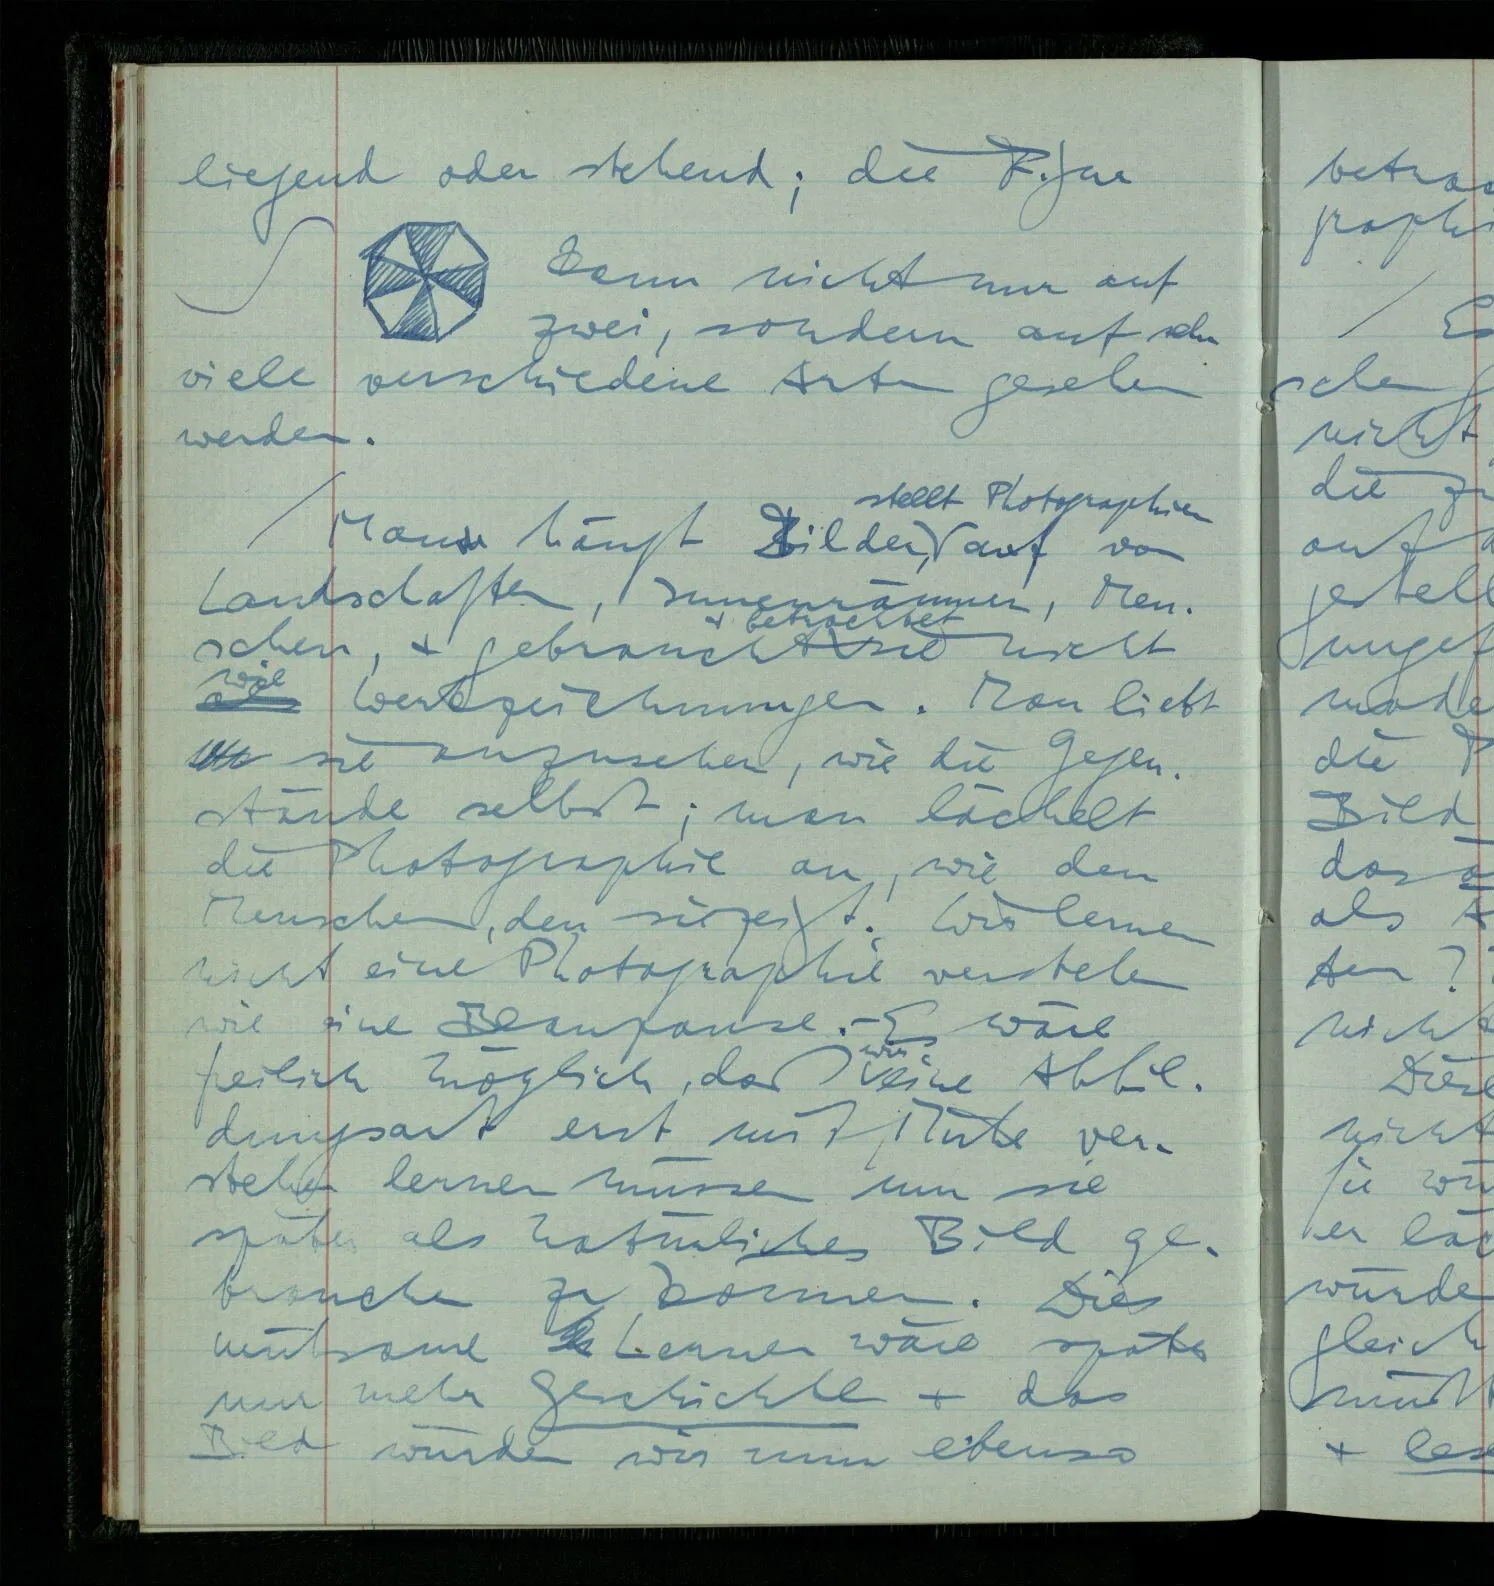 liegend oder stehend; die Figur
kann nicht nur auf
zwei, sondern auf sehr
viele verschiedene Arten gesehen
werden.
stellt Photographien
/ Man hängt Bilder, auf von
Landschaften, Innenräumen, Men-
+ betrachtet
schen, + gebraucht sie nicht
wie
als Werkzeichnungen. Man liebt
sie anzusehen, wie die Gegen-
stände selbst; man lächelt
die Photographie an, wie den
Menschen, den sie zeigt. Wir lernen
nicht eine Photographie verstehen
wie eine Blaupause. – Es wäre
wir
freilich möglich, daß eine Abbil-
dungsart erst mit Mühe ver-
stehen lernen müssen um sie
später als natürliches Bild ge-
brauchen zu können. Dies
mühsame Lernen wäre später
nur mehr Geschichte + das
Bild würden wir nun ebenso
graphi
/ Es
nicht
die
Bild
als
nicht
Diese
nicht
würde
gleich
+